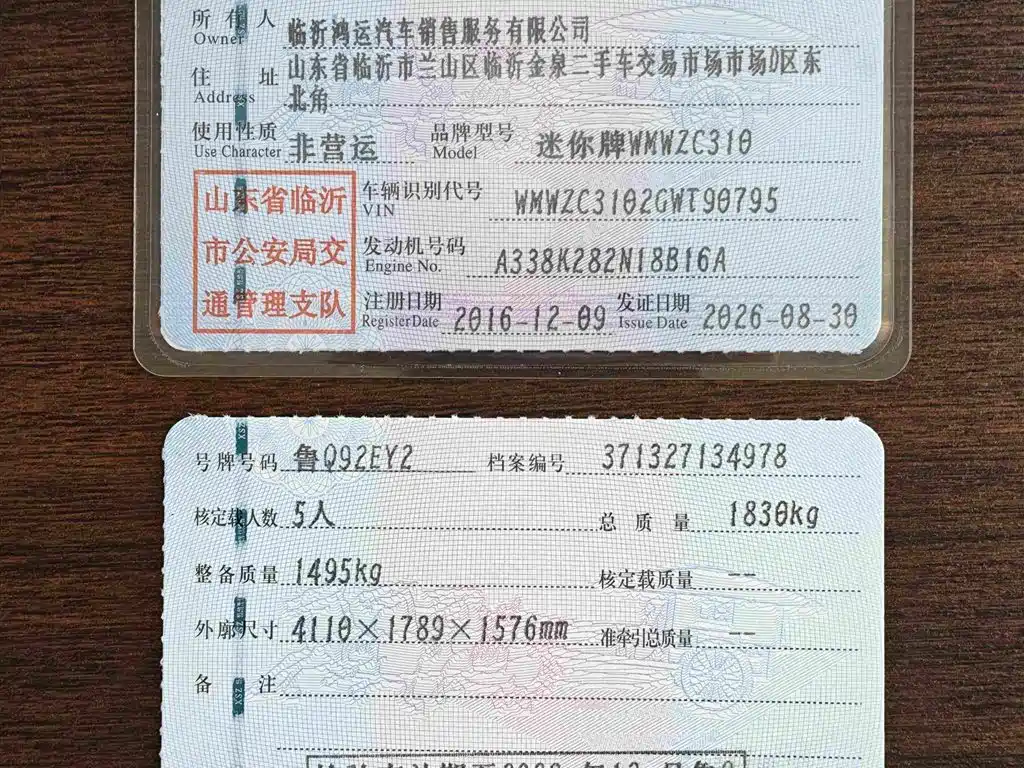 所有人 临沂鸿运汽车销售服务有限公司
Owner
住址 山东省临沂市兰山区临沂金泉二手车交易市场市场D区东
Address 北角
使用性质 非营运 品牌型号 迷你牌WMWZC310
Use Character Model
山东省临沂
市公安局交
通管理支队
车辆识别代号 WMWZC3102GWT90795
VIN
发动机号码 A338K282N18B16A
Engine No.
注册日期 2016-12-09 发证日期 2026-08-30
Register Date Issue Date
号牌号码 鲁Q92EY2 档案编号 371327134978
核定载人数 5人 总质量 1830kg
整备质量 1495kg 核定载质量 --
外廓尺寸 4110×1789×1576mm 准牵引总质量 --
备注